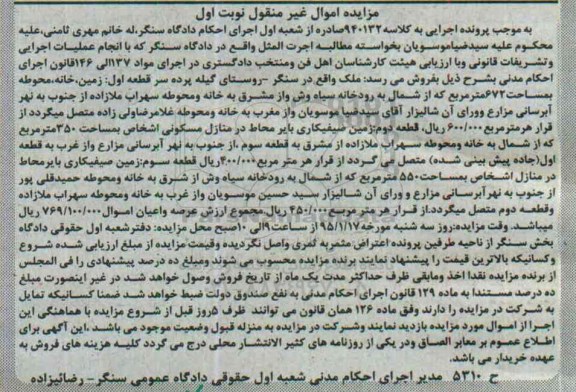 مزایده اموال غیر منقول نوبت اول
به موجب پرونده اجرایی به کلاسه۹۴۰۱۳۲صادره از شعبه اول اجرای احکام دادگاه سنگر،له خانم مهری ثامنی،علیه
محکوم علیه سیدضیاموسویان بخواسته مطالبه اجرت المثل واقع در دادگاه سنگر که با انجام عملیات اجرایی
وتشریفات قانونی وبا ارزیابی هیئت کارشناسان اهل فن ومنتخب دادگستری در اجرای مواد ۱۳۷الی ۱۴۶قانون اجرای
احکام مدنی بشرح ذیل بفروش می رسد: ملک واقع در سنگر –روستای گیله پرده سر قطعه اول: زمین،خانه،محوطه
بمساحت۶۷۲مترمربع که از شمال به رودخانه سیاه وش واز مشرق به خانه ومحوطه سهراب ملازاده از جنوب به نهر
آبرسانی مزارع وورای آن شالیزار آقای سیدضیا موسویان واز مغرب به خانه ومحوطه غلامرضاولی زاده متصل میگردد از
قرار هرمترمربع۶۰۰/۰۰۰ ریال، قطعه دوم:زمین صیفیکاری بایر محاط در منازل مسکونی اشخاص بمساحت ۳۵۰مترمربع
که از شمال به خانه ومحوطه سهراب ملازاده از مشرق به قطعه سوم ،از جنوب به نهر آبرسانی مزارع واز غرب به قطعه
اول(جاده پیش بینی شده) متصل می گردد از قرار هر متر مربع۴۰۰/۰۰۰ریال قطعه سوم:زمین صیفیکاری بایرمحاط
در منازل اشخاص بمساحت۵۵۰ مترمربع که از شمال به رودخانه سیاه وش از شرق به خانه ومحوطه حمیدقلی پور
از جنوب به نهرآبرسانی مزارع و ورای آن شالیزار سید حسین موسویان واز غرب به خانه ومحوطه سهراب ملازاده
وقطعه دوم متصل میگردد.از قرار هر متر مربع ۴۵۰/۰۰۰ ریال مجموع ارزش عرصه واعیان اموال۷۶۹/۱۰۰/۰۰۰ ریال
میباشد. وقت مزایده:روز سه شنبه مورخه۹۵/۱/۱۷ از ساعت۹الی ۱۰صبح محل مزایده: دفترشعبه اول حقوقی دادگاه
بخش سنگر از ناحیه طرفین پرونده اعتراض مثمربه ثمری واصل نگردیده وقیمت مزایده از مبلغ ارزیابی شده شروع
وکسانیکه بالاترین قیمت را پیشنهاد نمایند برنده مزایده محسوب می شوند ومبلغ ده درصد پیشنهادی را فی المجلس
از برنده مزایده نقدا اخذ ومابقی ظرف حداکثر مدت یک ماه از تاریخ فروش وصول خواهد شد در غیر اینصورت مبلغ
ده درصد مستندا به ماده ۱۲۹ قانون اجرای احکام مدنی به نفع صندوق دولت ضبط خواهد شد ضمنا کسانیکه تمایل
به شرکت در مزایده را دارند وفق ماده ۱۲۶ همان قانون می توانند ظرف ۵روز قبل از شروع مزایده با هماهنگی این
اجرا از اموال مورد مزایده بازدید نمایند وشرکت در مزایده به منزله قبول وضعیت موجود می باشد .این آگهی برای
اطلاع عموم بر معابر الصاق ودر یکی از روزنامه های کثیر الانتشار محلی درج می گردد کلیه هزینه های فروش به
عهده خریدار می باشد.
ح ۵۳۱۰ مدیر اجرای احکام مدنی شعبه اول حقوقی دادگاه عمومی سنگر– رضائیزاده